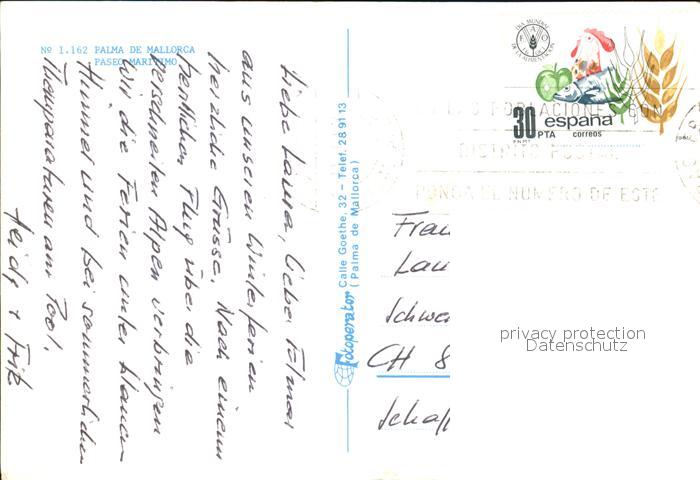 Nº 1.162 PALMA DE MALLORCA
PASEO MARITIMO
Liebe Laura, lieber
aus unseren Winterferien
herzliche Grüsse. Nach einem
herrlichen Flug über die
verschneiten Alpen verbringen
wir die Ferien unter blauem
Himmel und bei sommerlichen
Temparaturen am Pool.
Heidy + Fritz
Fotoperator Calle Goethe, 32 - Telef. 28 91 13
(Palma de Mallorca)
DIA MUNDIAL
DE LA ALIMENTACION
FAO
30 PTA
españa
correos
POBLACIONES CON
DISTRITO POSTAL
PONGA EL NUMERO DE ESTE
Frau
Lau
Schwe
CH 8
Schaff
privacy protection
Datenschutz